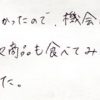 かったので、機会
商品も食べてみ
た。